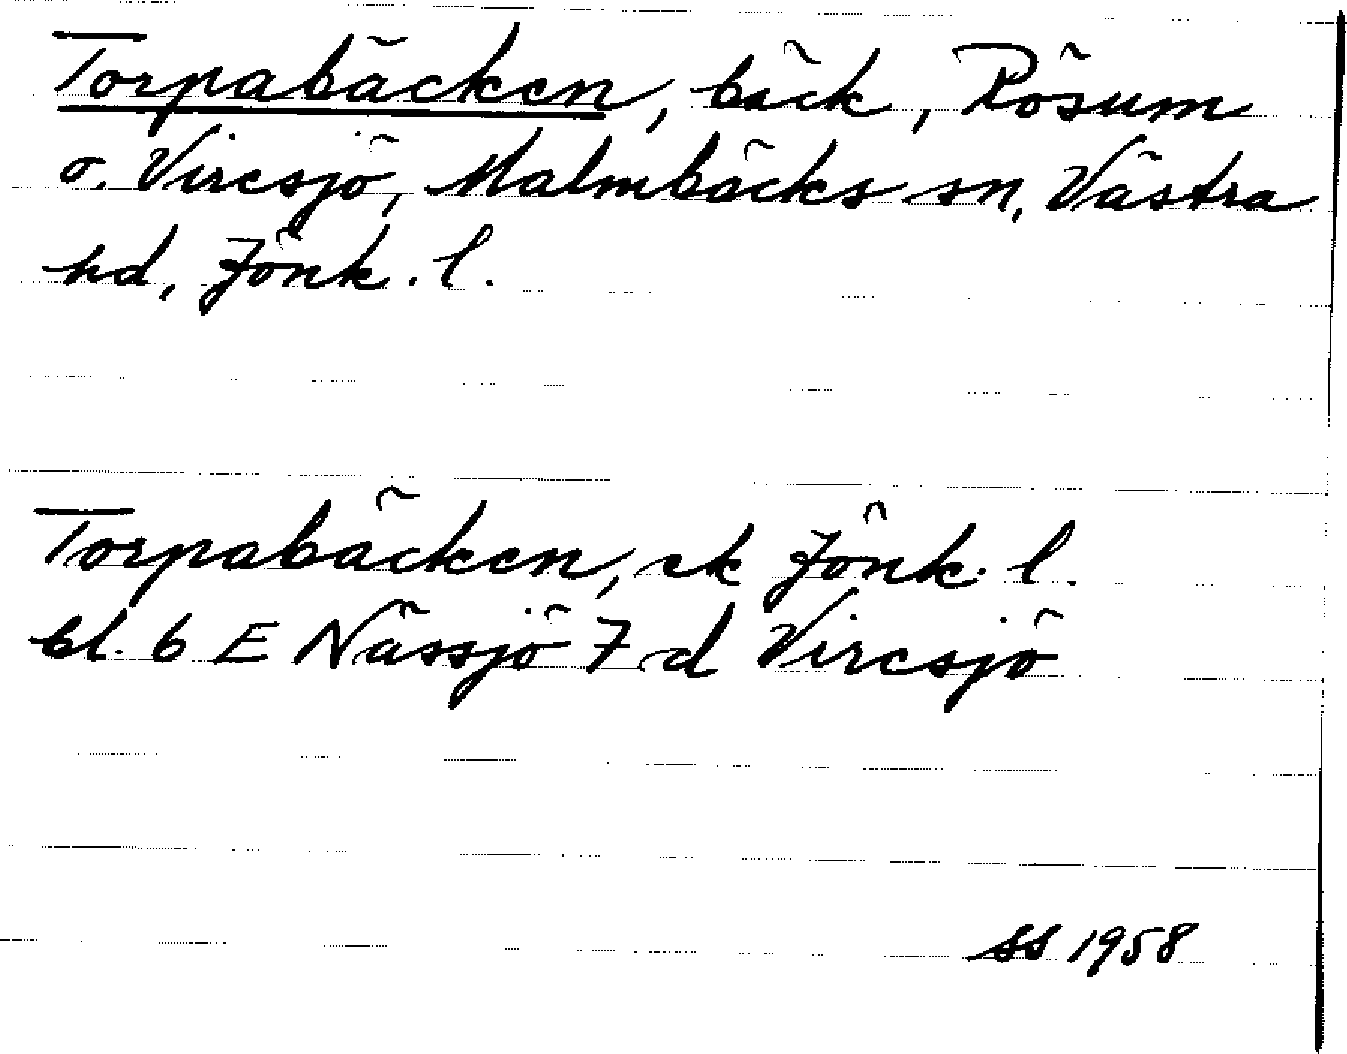 Torpabäcken, bäck, Rösum
o. Viresjö, Malmbäcks sn, Västra
hd, Jönk. l.
Torpabäcken, ek Jönk. l.
bl. 6 E Nässjö 7 d Viresjö
SS 1958